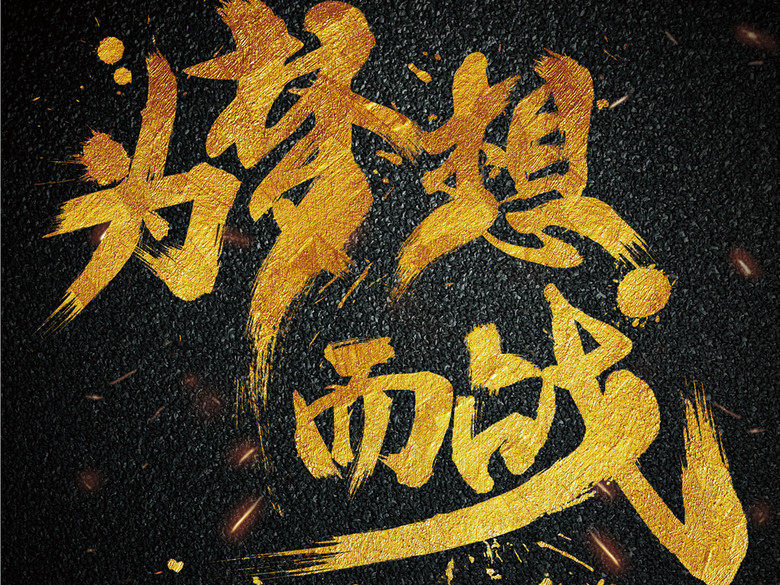 为梦想
而战